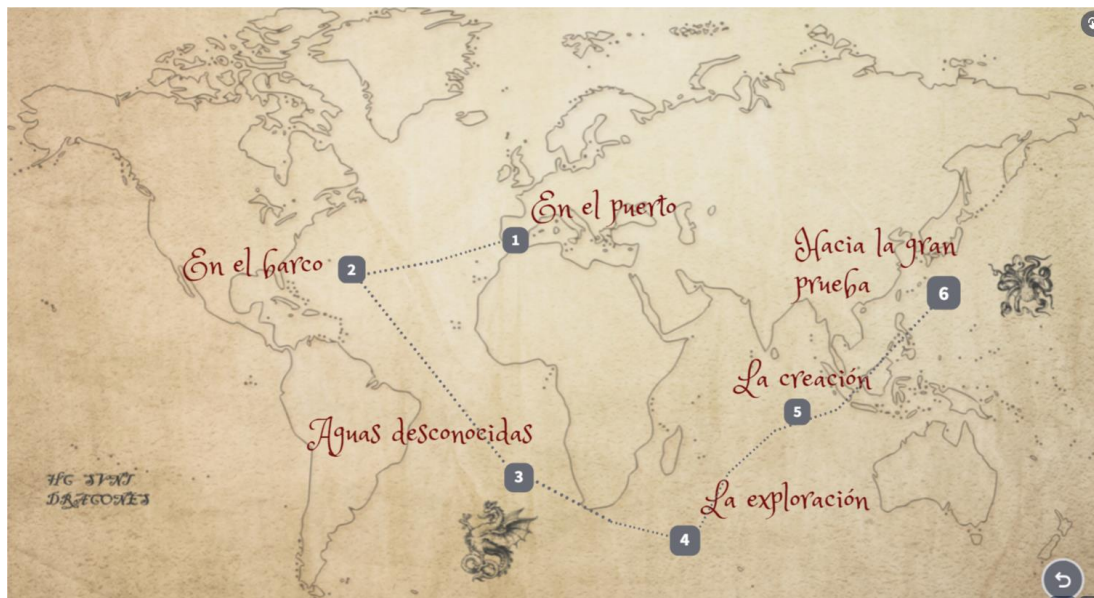 En el puerto
1
En el barco
2
Hacia la gran
prueba
6
La creación
5
Aguas desconocidas
3
La exploración
4
HC SVNT
DRACONES